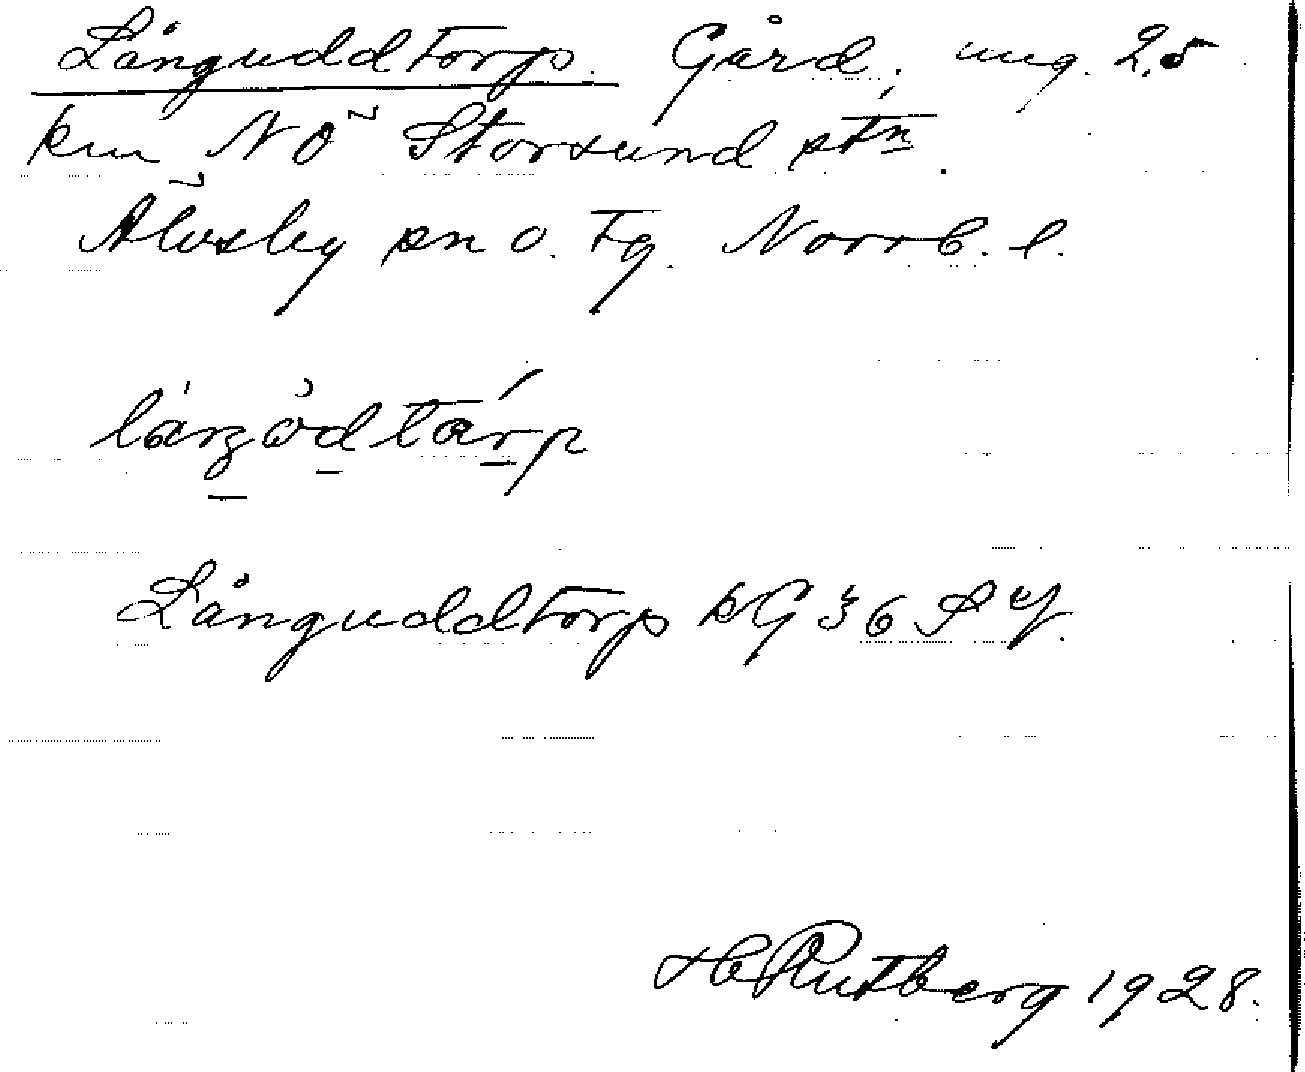 Långuddtorp. Gård, ung. 2,5
km NÖ Storsund stn
Älvsby sn o. tg. Norrb. l.
Långuddtorp kG 36 SY.
H Rutberg 1928.